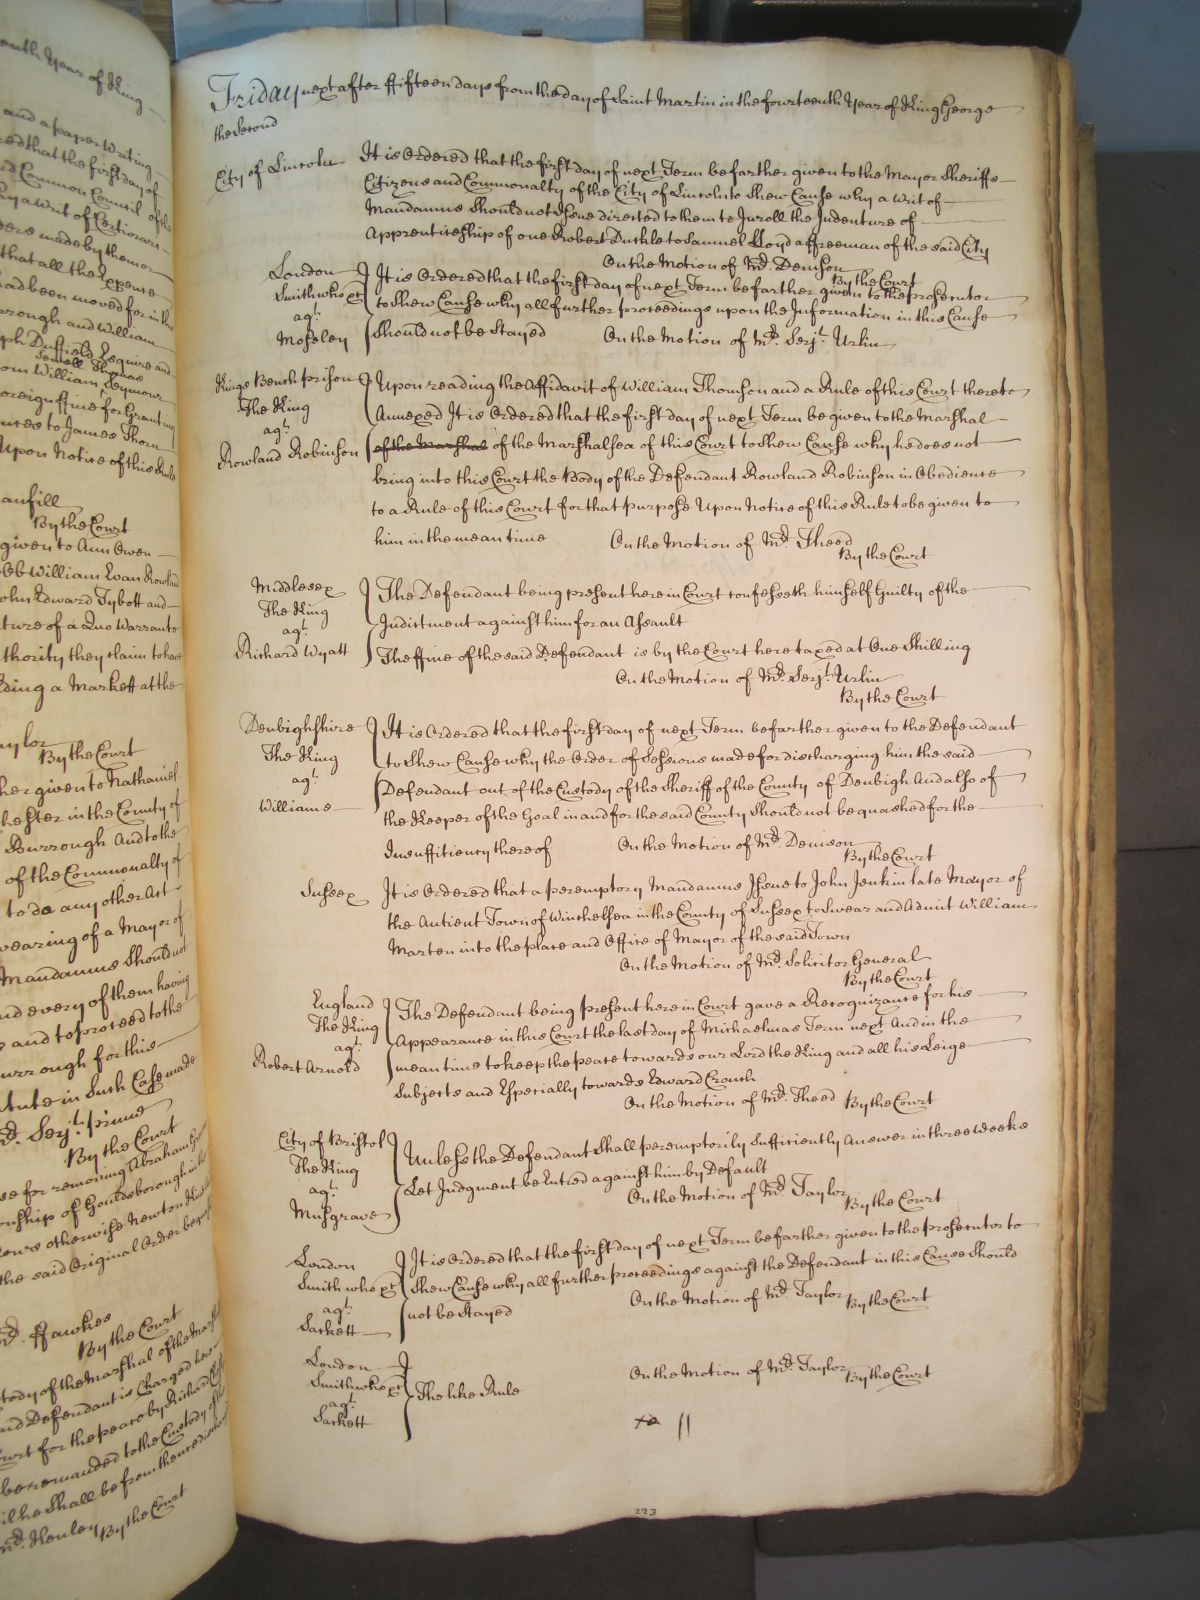 outh Year of King
and a paper Writing
red that the first day of
Common Council of the
a Writ of Certiorari
ders made by them or
that all the Expence
had been moved for in th
rrough and William
ph Duffield Esquire and
Sewell Thomas
om William Seymour
oreign ffine for Granting
to James Thorn
Upon Notice of this Rule
anfill
By the Court
given to Ann Owen
Ob William Evan Rowland
ohn Edward Tybott and
ture of a Quo Warranto
thority they claim to have
ding a Markett at the
aylor
By the Court
her given to Nathaniel
hester in the County of
Burrough And to the
of the Commonalty of
to do any other Act
wearing of a Mayor of
Mandamus Should not
nd every of them having
and to proceed to the
urrough for this
tute in Such Case made
Mr. Serjt. prime
By the Court
for removing Abraham
nship of Gouldsborough in the
otherwise Newton
the said Original Order be
Mr. ffawkes
By the Court
tody of the Marshal of the Marsh
and Defendant is Charged here in
Court for the peace by Richard
be remanded to the Custody of the
il he Shall be from thence disch
Mr. Henley By the Court
Friday next after ffifteen days from the day of Saint Martin in the fourteenth Year of King George
the Second
City of Lincoln It is Ordered that the first day of next Term be farther given to the Mayor Sheriffs
Citizens and Commonalty of the City of Lincoln to Shew Cause why a Writ of
Mandamus Should not Issue directed to them to Inroll the Indenture of
Apprenticeship of one Robert Duthle to Samuel Lloyd a ffreeman of the said City
On the Motion of Mr. Denison
By the Court
London It is Ordered that the first day of next Term be farther given to the prosecutor
Smith who &c to Shew Cause why all further proceedings upon the Information in this Cause
agt.
Moseley Should not be Stayed On the Motion of Mr. Serjt. Urlin
Kings Bench prison Upon reading the Affidavit of William Thomson and a Rule of this Court thereto
The King Annexed It is Ordered that the first day of next Term be given to the Marshal
agt.
Rowland Robinson of the Marshal of the Marshalsea of this Court to Shew Cause why he does not
bring into this Court the Body of the Defendant Rowland Robinson in Obedience
to a Rule of this Court for that purpose Upon Notice of this Rule to be given to
him in the mean time On the Motion of Mr. Theed
By the Court
Middlesex The Defendant being present here in Court confesseth himself Guilty of the
The King Indictment against him for an Assault
agt.
Richard Wyatt The ffine of the said Defendant is by the Court here taxed at One Shilling
On the Motion of Mr. Serjt. Urlin
By the Court
Denbighshire It is Ordered that the first day of next Term be farther given to the Defendant
The King to Shew Cause why the Order of Sessions made for discharging him the said
agt. Defendant out of the Custody of the Sheriff of the County of Denbigh And also of
Williams the Keeper of the Goal in and for the said County Should not be quashed for the
Insufficiency thereof On the Motion of Mr. Denison
By the Court
Sussex It is Ordered that a peremptory Mandamus Issue to John Jenkin late Mayor of
the Antient Town of Winchelsea in the County of Sussex to Swear and Admit William
Marten into the place and Office of Mayor of the said Town
On the Motion of Mr. Solicitor General
By the Court
England The Defendant being present here in Court gave a Recognizance for his
The King Appearance in this Court the last day of Michaelmas Term next And in the
agt.
Robert Arnold mean time to keep the peace towards our Lord the King and all his Leige
Subjects and Especially towards Edward Crouch
On the Motion of Mr. Theed By the Court
City of Bristol Unless the Defendant Shall peremptorily Sufficiently Answer in three Weeks
The King
agt. Let Judgment be Entred against him by Default
Musgrave On the Motion of Mr. Taylor By the Court
London It is Ordered that the first day of next Term be farther given to the prosecutor to
Smith who &c Shew Cause why all further proceedings against the Defendant in this Cause Should
agt. not be Stayed On the Motion of Mr. Taylor By the Court
Sackett
London On the Motion of Mr. Taylor By the Court
Smith who &c The like Rule
agt.
Sackett
11
223